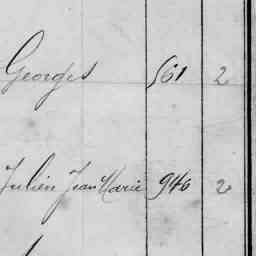 Georges 561 2
Julien Jean Marie 946 2